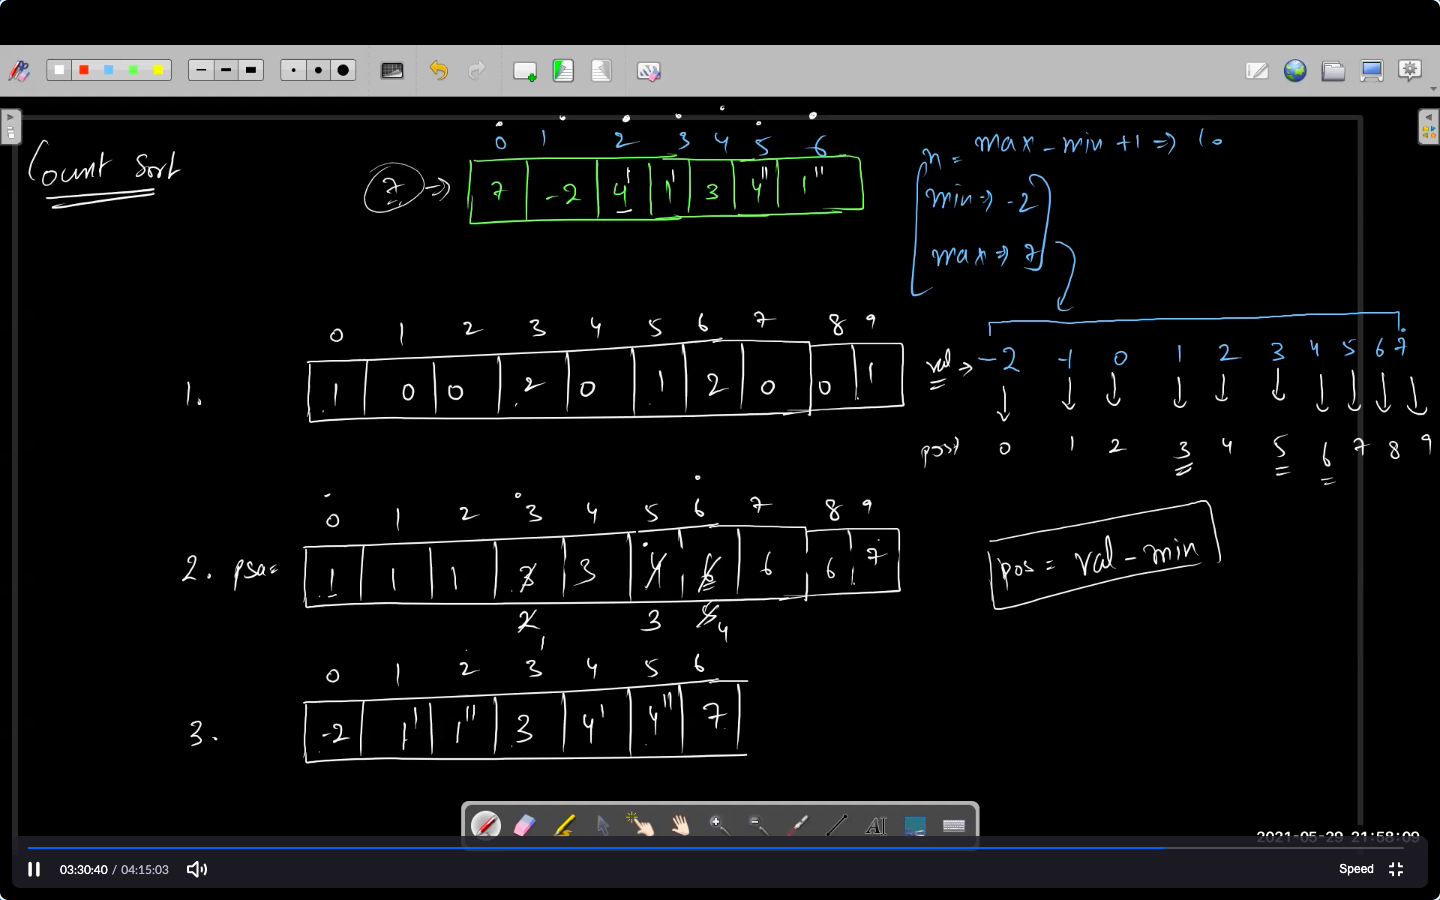 Count Sort
0 1 2 3 4 5 6
7 => 7 -2 4' 1' 3 4" 1"
n = max - min + 1 => 10
min => -2
max => 7
0 1 2 3 4 5 6 7 8 9
1. 1 0 0 2 0 1 2 0 0 1
val → -2 -1 0 1 2 3 4 5 6 7
0 1 2 3 4 5 6 7 8 9
0 1 2 3 4 5 6 7 8 9
2. psa= 1 1 1 3 3 4 6 6 6 7
2 3 5 4
1
pos = val - min
0 1 2 3 4 5 6
3. -2 1' 1" 3 4' 4" 7
AI
2021-05-29 21:58:09
03:30:40 / 04:15:03
Speed